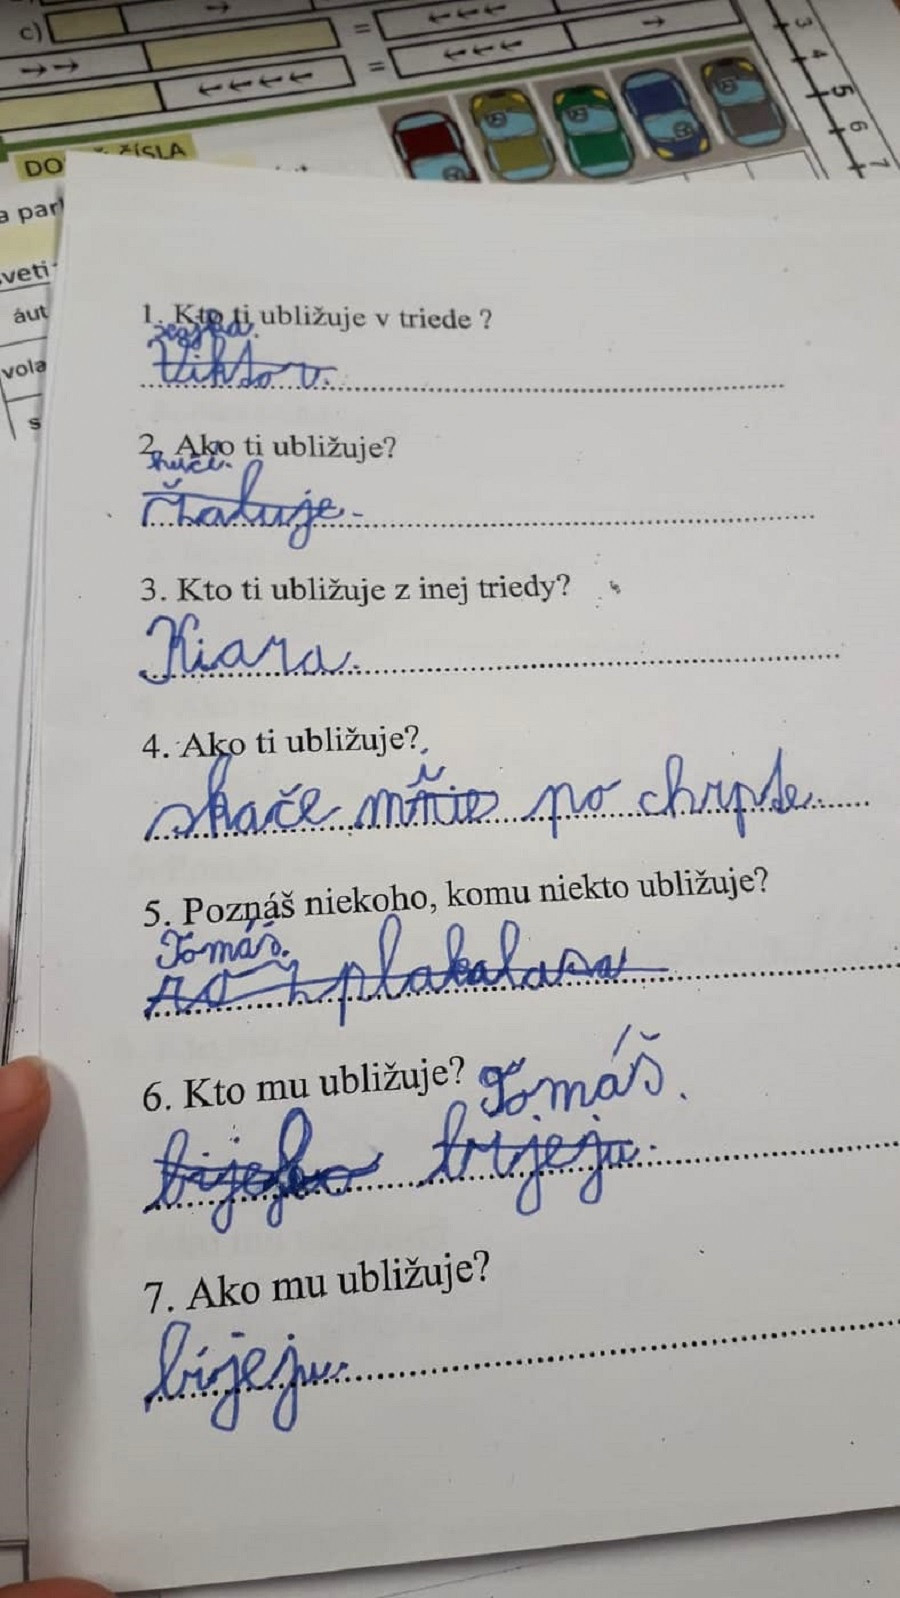 c)
→
=
← ← ←
→ →
← ← ← ←
=
← ← ←
→
3
4
5
6
7
ČÍSLA
a par
sveti
áut
vola
s
1. Kto ti ubližuje v triede ?
Viktor.
2. Ako ti ubližuje?
hučí.
Žaluje.
3. Kto ti ubližuje z inej triedy?
Kiara.
4. Ako ti ubližuje?
skače mňie po chrpte.
5. Poznáš niekoho, komu niekto ubližuje?
Tomáš.
plakalasa
6. Kto mu ubližuje? Tomáš.
bijeju.
7. Ako mu ubližuje?
bijeju.